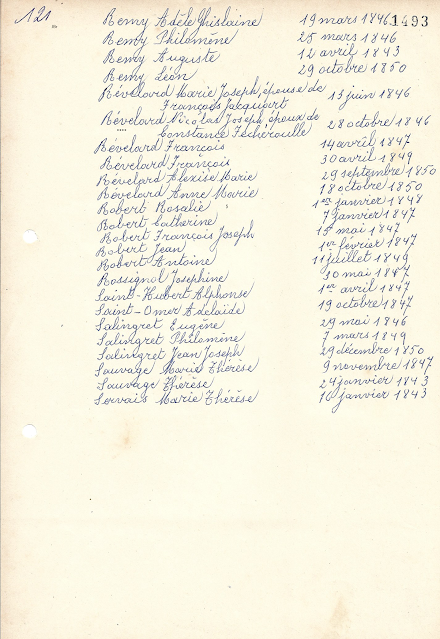 121 1493
Remy Adèle Ghislaine 19 mars 1846
Remy Philomène 25 mars 1846
Remy Auguste 12 avril 1843
Remy Léon 29 octobre 1850
Révelard Marie Joseph, épouse de
François Jacquiert 13 juin 1846
Révelard Nicolas Joseph, époux de
Constance Fecheroulle 28 octobre 1846
Révelard François 14 avril 1847
Révelard François 30 avril 1849
Révelard Alexise Marie 29 septembre 1850
Révelard Anne Marie 18 octobre 1850
Robert Rosalie 1er janvier 1848
Robert Catherine 7 janvier 1847
Robert François Joseph 15 mai 1847
Robert Jean 1er février 1847
Robert Antoine 11 juillet 1849
Rossignol Josephine 30 mai 1847
Saint-Hubert Alphonse 1er avril 1847
Saint-Omer Adelaïde 19 octobre 1847
Salingret Eugène 29 mai 1846
Salingret Philomine 7 mars 1849
Salingret Jean Joseph 29 décembre 1850
Sauvage Marie Thérèse 9 novembre 1847
Sauvage Thérèse 24 janvier 1843
Servais Marie Thérèse 10 janvier 1843